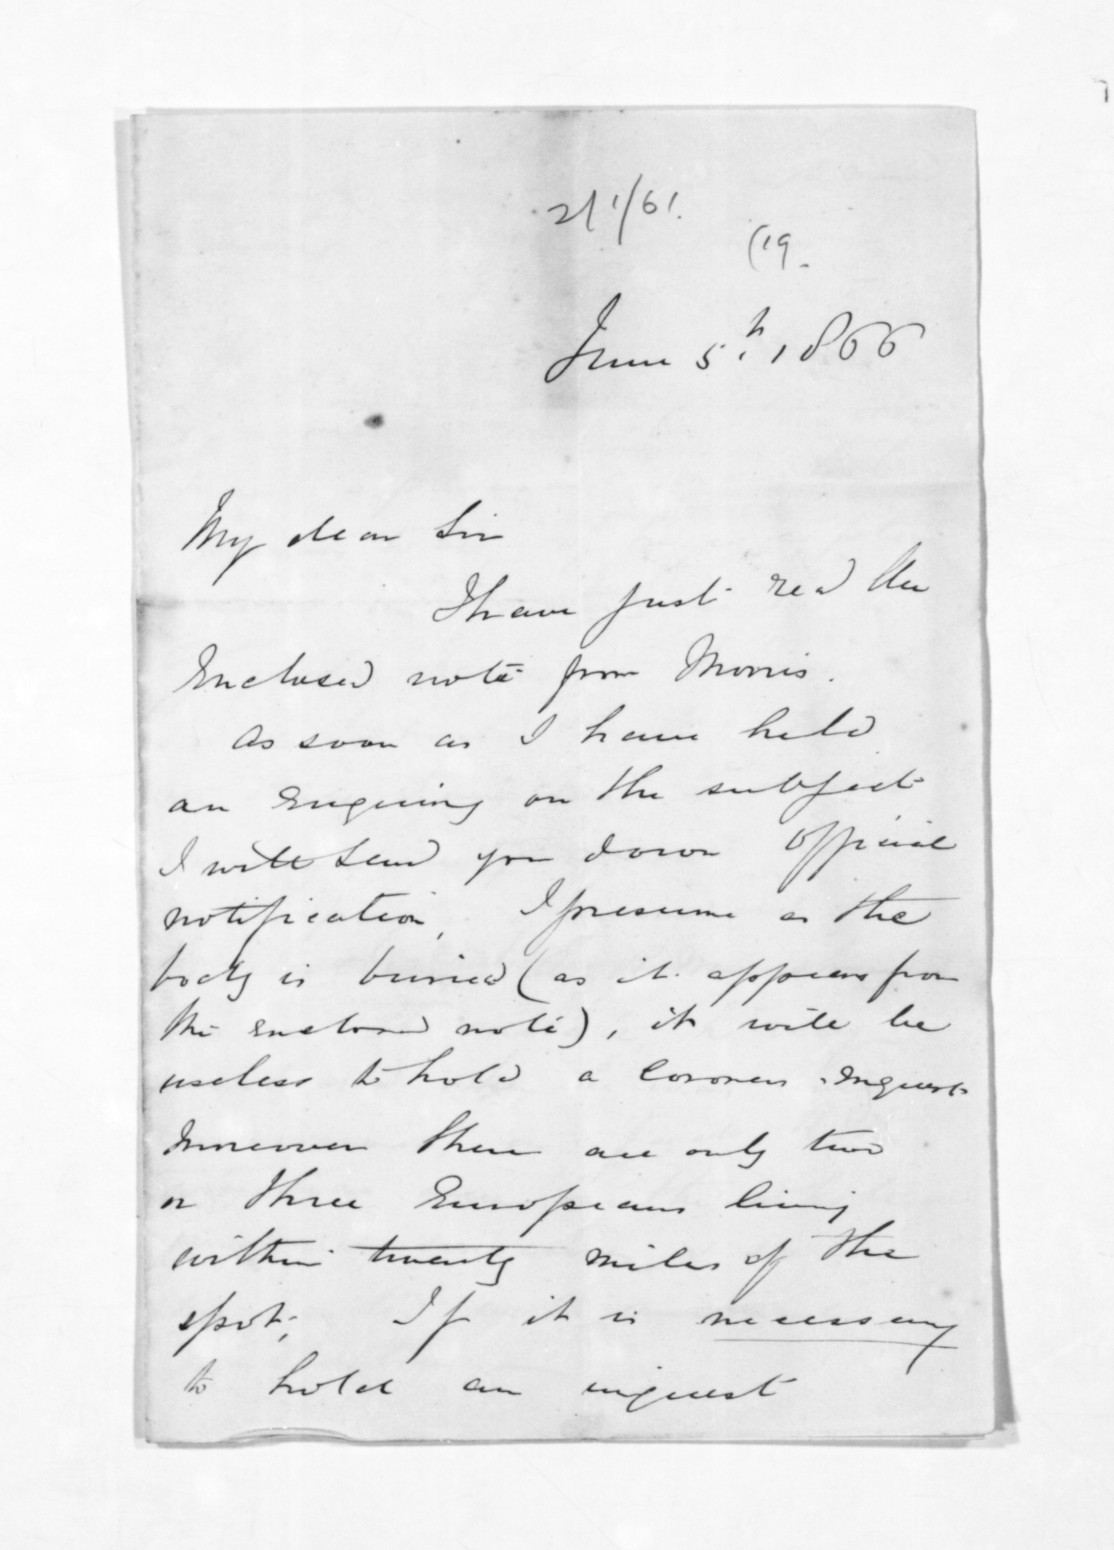 2/1/61.
(19.
June 5th. 1866
My dear Sir
I have just read the
Enclosed note from Morris.
As soon as I have held
an Enquiry on the subject
I will send you down Official
notification, I presume as the
body is buried (as it appears from
the enclosed note), it will be
useless to hold a Coroners Inquest
moreover there are only two
or three Europeans living
within twenty miles of the
spot; If it is necessary
to hold an inquest